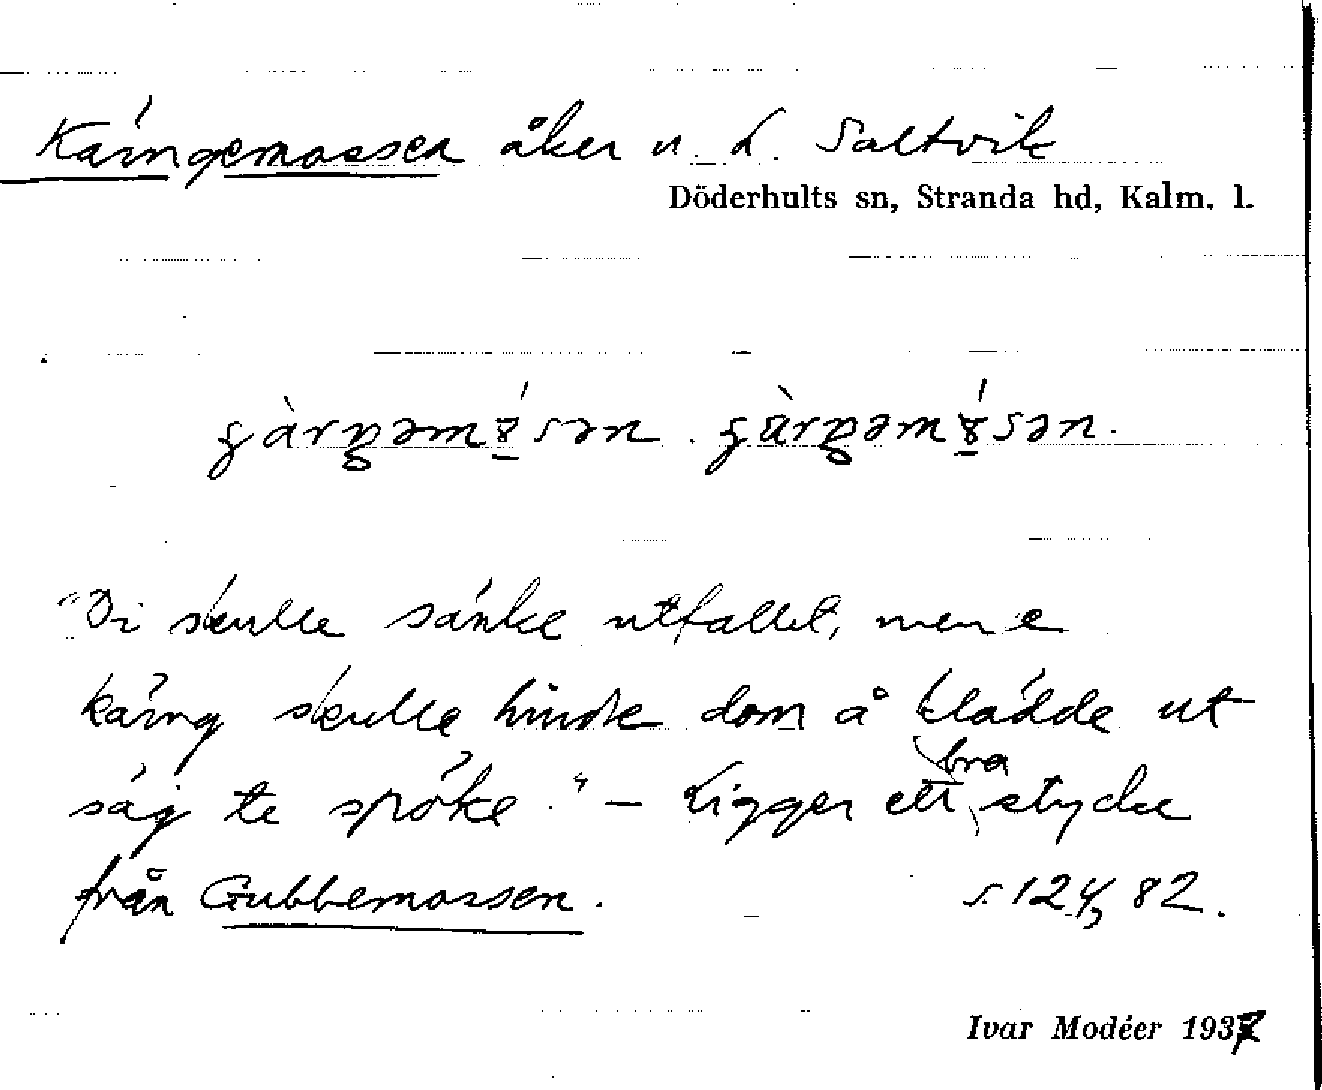 Kärngemossen åker u. L. Saltvik
Döderhults sn, Stranda hd, Kalm. l.
"Di skulle sänke utfallet, men e
käring skulle hindre dom å klädde ut
säg te spöke." – Ligger ett bra stycke
från Gubbemossen. s. 124, 82.
Ivar Modéer 1937